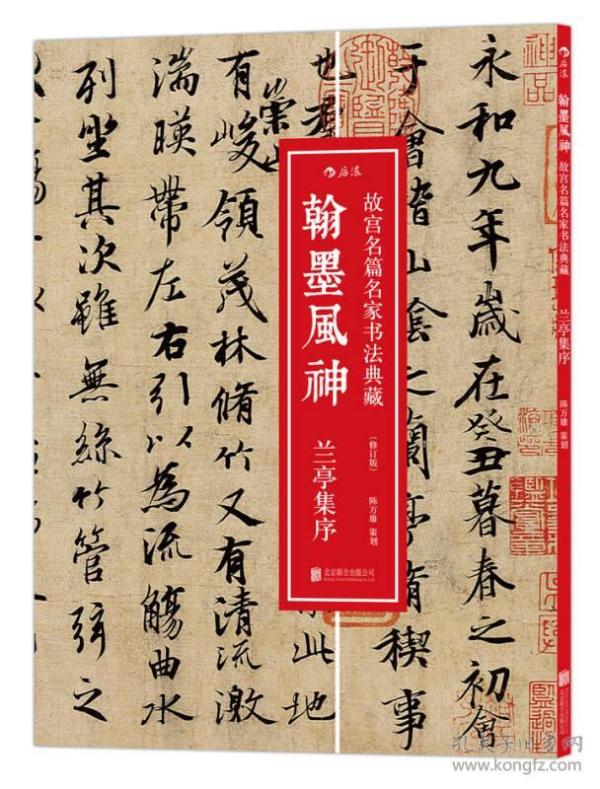 永和九年歲在癸丑暮春之初會
于會稽山陰之蘭亭脩稧事
也群
此地
崇山
有峻領茂林脩竹又有清流激
湍暎帶左右引以為流觴曲水
列坐其次雖無絲竹管弦之
后浪
故宫名篇名家书法典藏
（修订版）
陈万雄 策划
翰墨風神
兰亭集序
北京联合出版公司
后浪
翰墨風神
故宫名篇名家书法典藏
兰亭集序
陈万雄 策划
孔夫子旧书网
www.kongfz.com